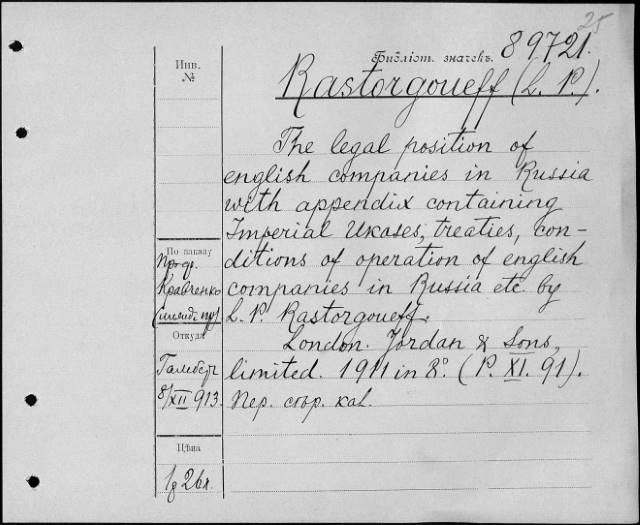 25
Библіот. значекъ. 89721.
Инв.
№
Rastorgoueff (L. P.).
The legal position of
english companies in Russia
with appendix containing
Imperial Ukases, treaties, con-
ditions of operation of english
companies in Russia etc. by
L. P. Rastorgoueff.
London. Jordan & Sons,
limited. 1911 in 8º. (P. XI. 91).
Пер. стр. каl.
По заказу
Кравченко
Откуда
8/XII 913.
Цѣна